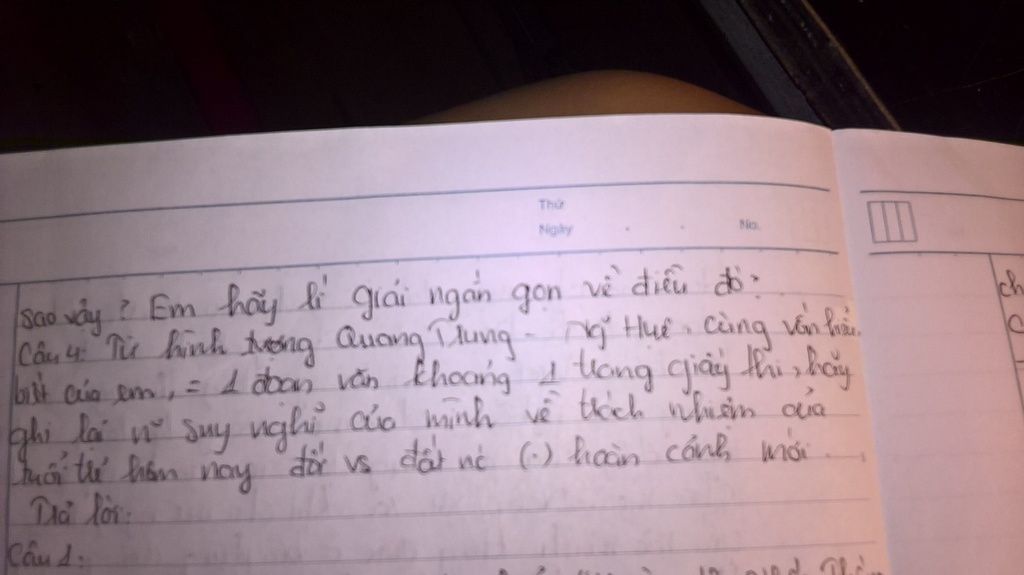 Thứ
Ngày . . No.
sao vậy? Em hãy lí giải ngắn gọn về điều đó?
Câu 4: Từ hình tượng Quang Trung - Ng~ Huệ, cùng vốn hiểu
biết của em, = 1 đoạn văn khoảng 1 trang giấy thi, hãy
ghi lại n~ suy nghĩ của mình về trách nhiệm của
tuổi trẻ hôm nay đối vs đất nc (.) hoàn cảnh mới.
Trả lời:
Câu 1:
ch
C